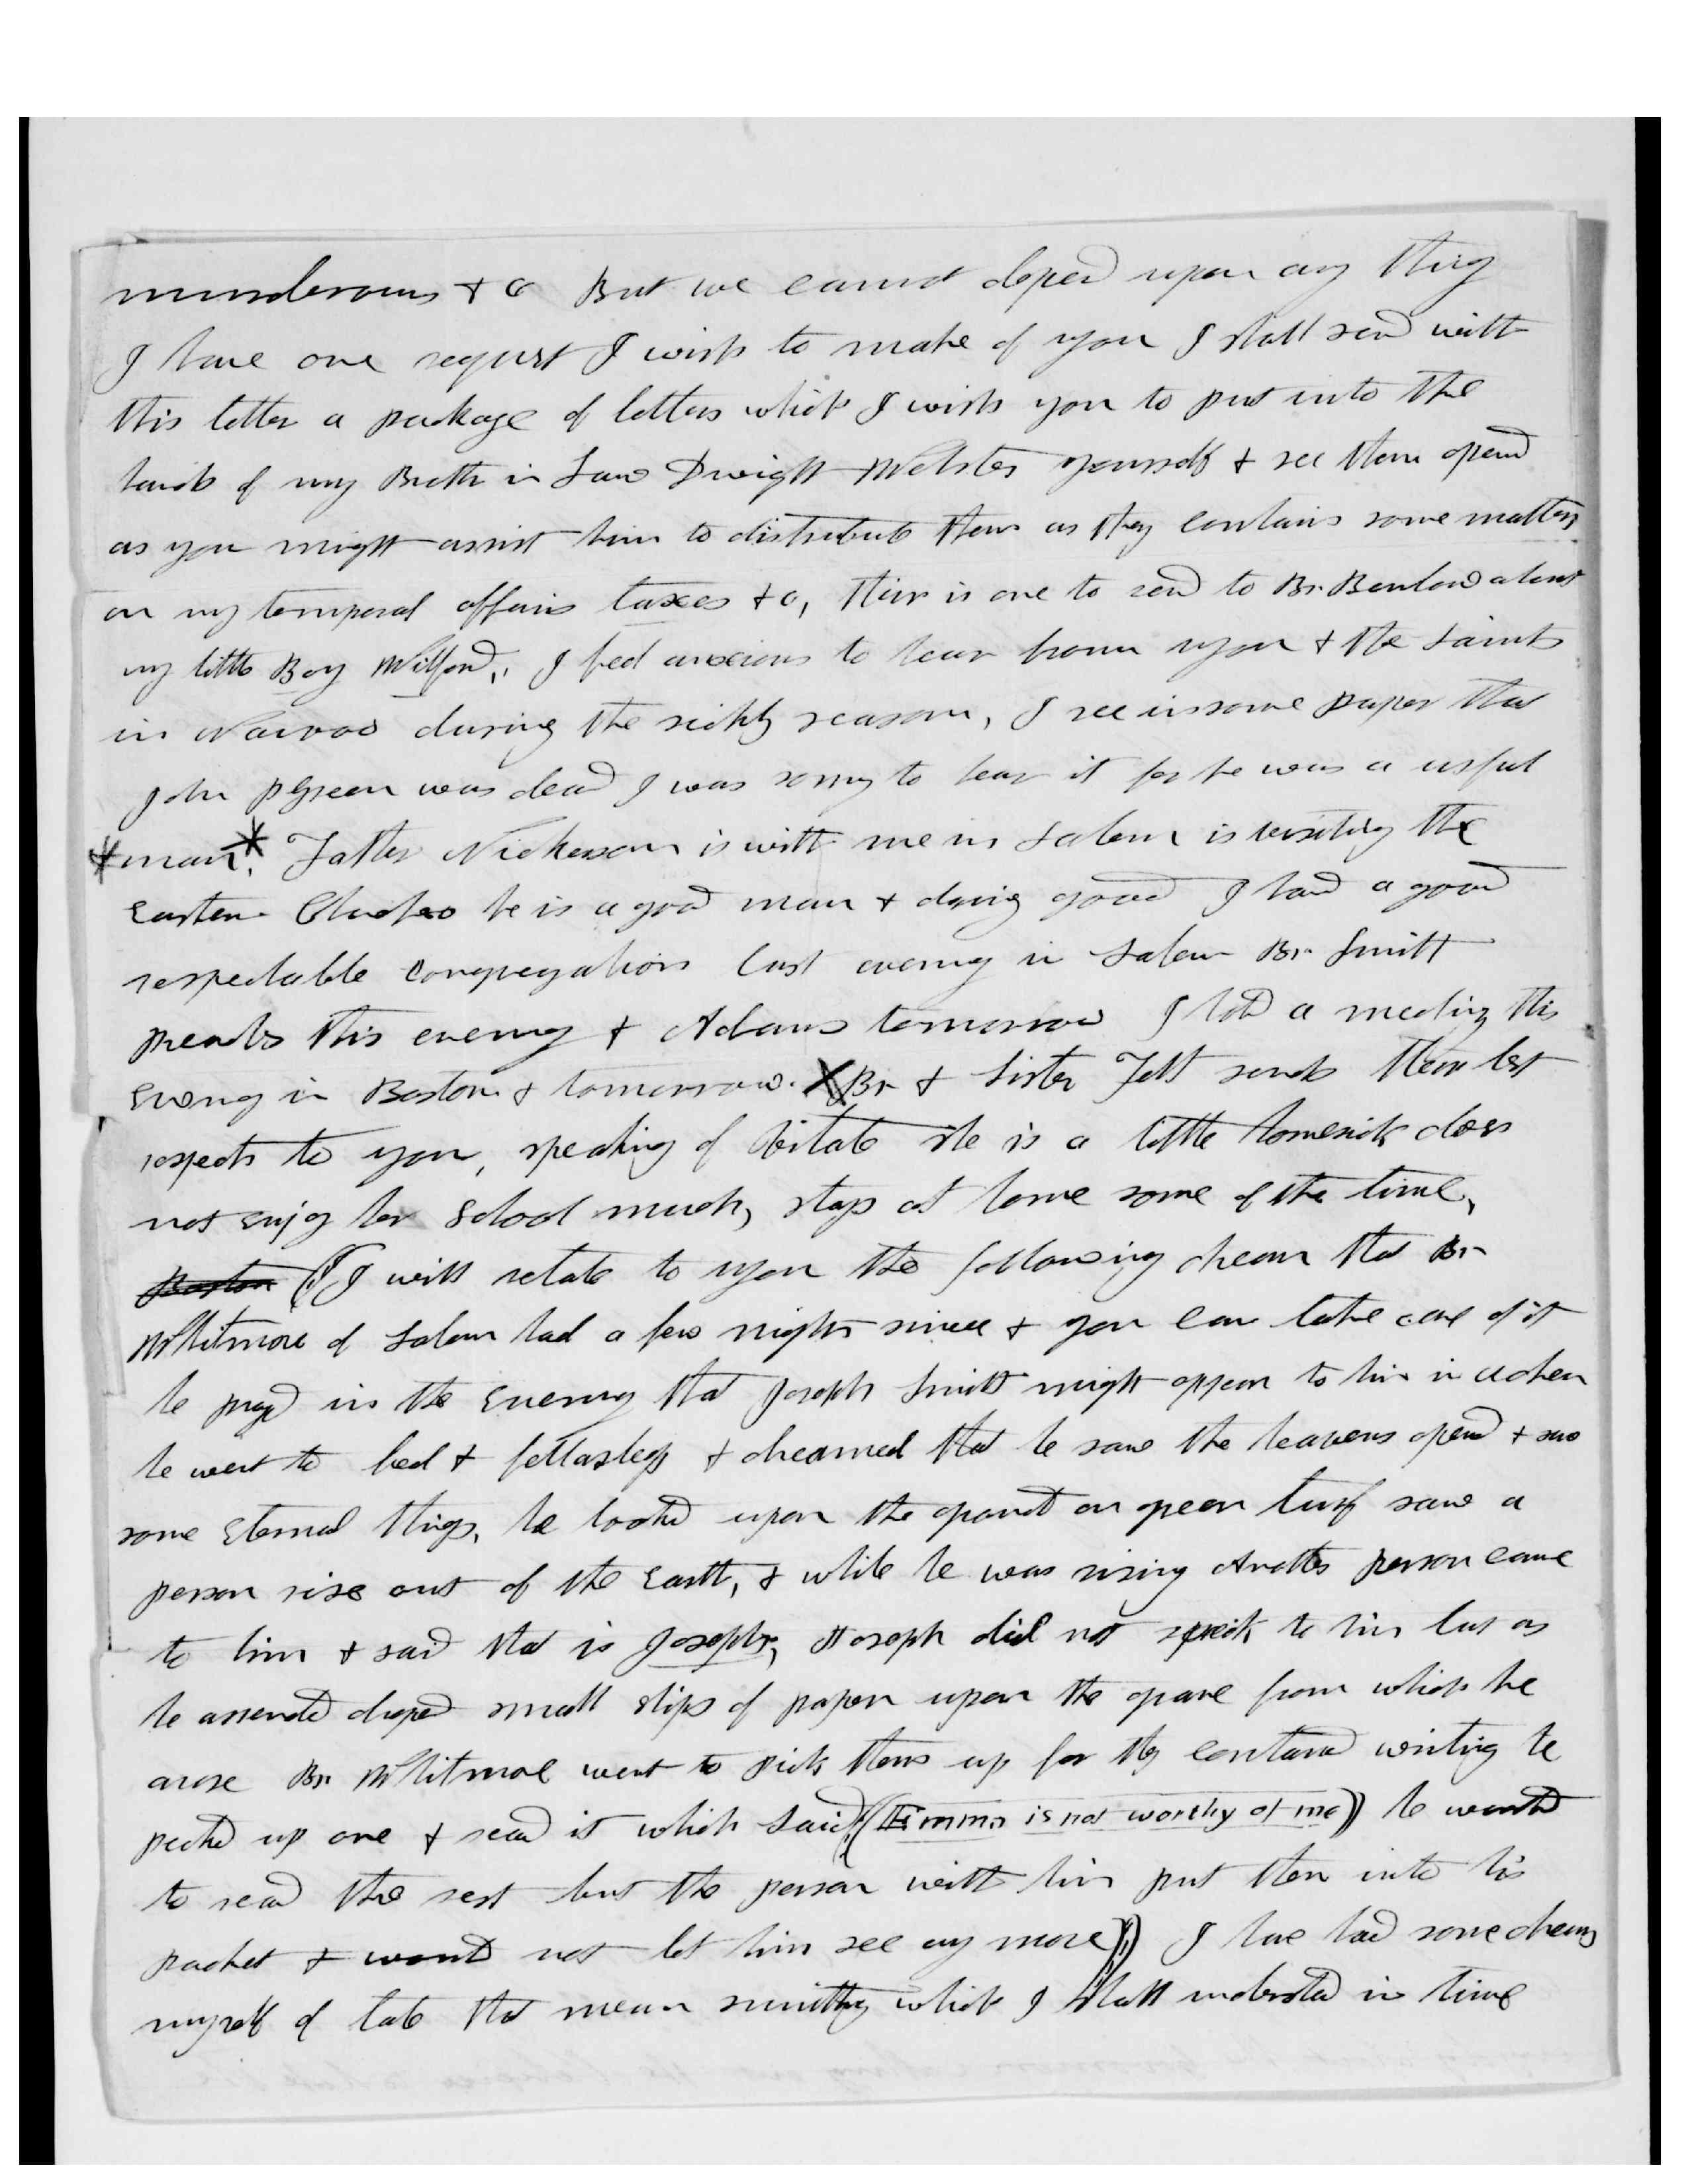 murderous & c But we cannot depend upon any thing
I have one request I wish to make of you I shall send with
this letter a package of letters which I wish you to put into the
hands of my Brother in Law Dwight Webster yourself & see them opend
as you might assist him to distribute them as they contains some matters
on my temporal affairs taxes & c, their is one to send to Br. Benbow about
my little Boy Wilford,, I feel anxious to hear from you & the Saints
in Nauvoo during the sickly season, I see in some paper that
John P Green was dead I was sorry to hear it for he was a usful
*man.* Father Nickerson is with me in Salem is visiting the
Eastern Churches he is a good man & doing good I had a good
respectable congregation last evening in Salem Br Smith
preaches this evening & Adams tomorrow I hold a meeting this
Evening in Boston & tomorrow. Br & Sister Felt sends their best
respects to you, speaking of Vilate she is a little homesick does
not enjoy her School much, stays at home some of the time,
Boston (I will relate to you the following dream that Br
Whitmore of Salem had a few nights since & you can take care of it
he prayed in the Evening that Joseph Smith might appear to him in a dream
he went to bed & fell asleep & dreamed that he saw the heavens opend & saw
some Eternal things, he looked upon the ground on green turf saw a
person rise out of the Earth, & while he was rising Another person came
to him & said that is Joseph, Joseph did not speak to him but as
he assended droped small slips of paper upon the grave from which he
arose Br Whitmore went to pick them up for they contained writing he
picked up one & read it which said, (Emma is not worthy of me) he wanted
to read the rest but the person with him put them into his
pocket & would not let him see any more)) I have had some dreams
myself of late that mean sumthing which I shall understand in time